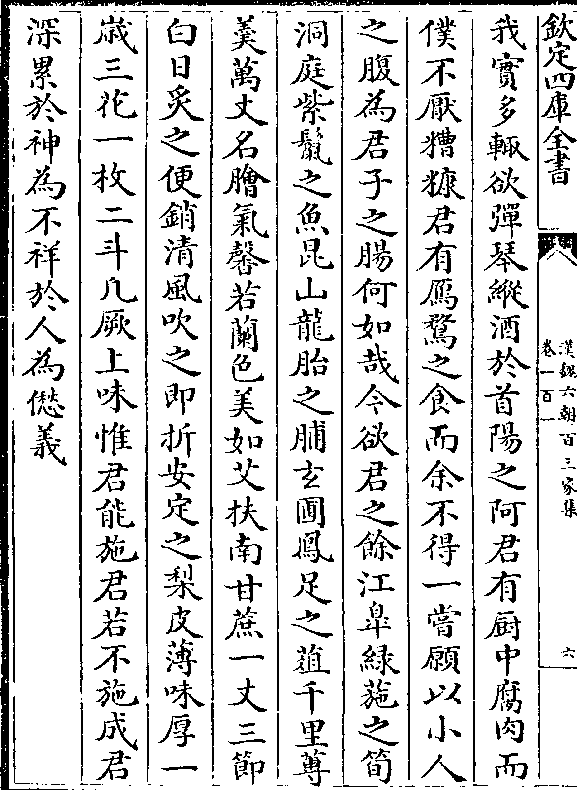 欽定四庫全書
漢魏六朝百三家集
卷一百一
六
我實多輙欲彈琴縱酒於首陽之阿君有厨中腐肉而
僕不厭糟糠君有鴈鶩之食而余不得一嘗願以小人
之腹為君子之腸何如哉今欲君之餘江臯緑葹之筍
洞庭紫鬛之魚昆山龍胎之脯玄圃鳳足之葅千里蓴
羮萬丈名膾氣馨若蘭色美如艾扶南甘蔗一丈三節
白日炙之便銷清風吹之即折安定之梨皮薄味厚一
嵗三花一枚二斗凡厥上味惟君能施君若不施成君
深累於神為不祥於人為愆義